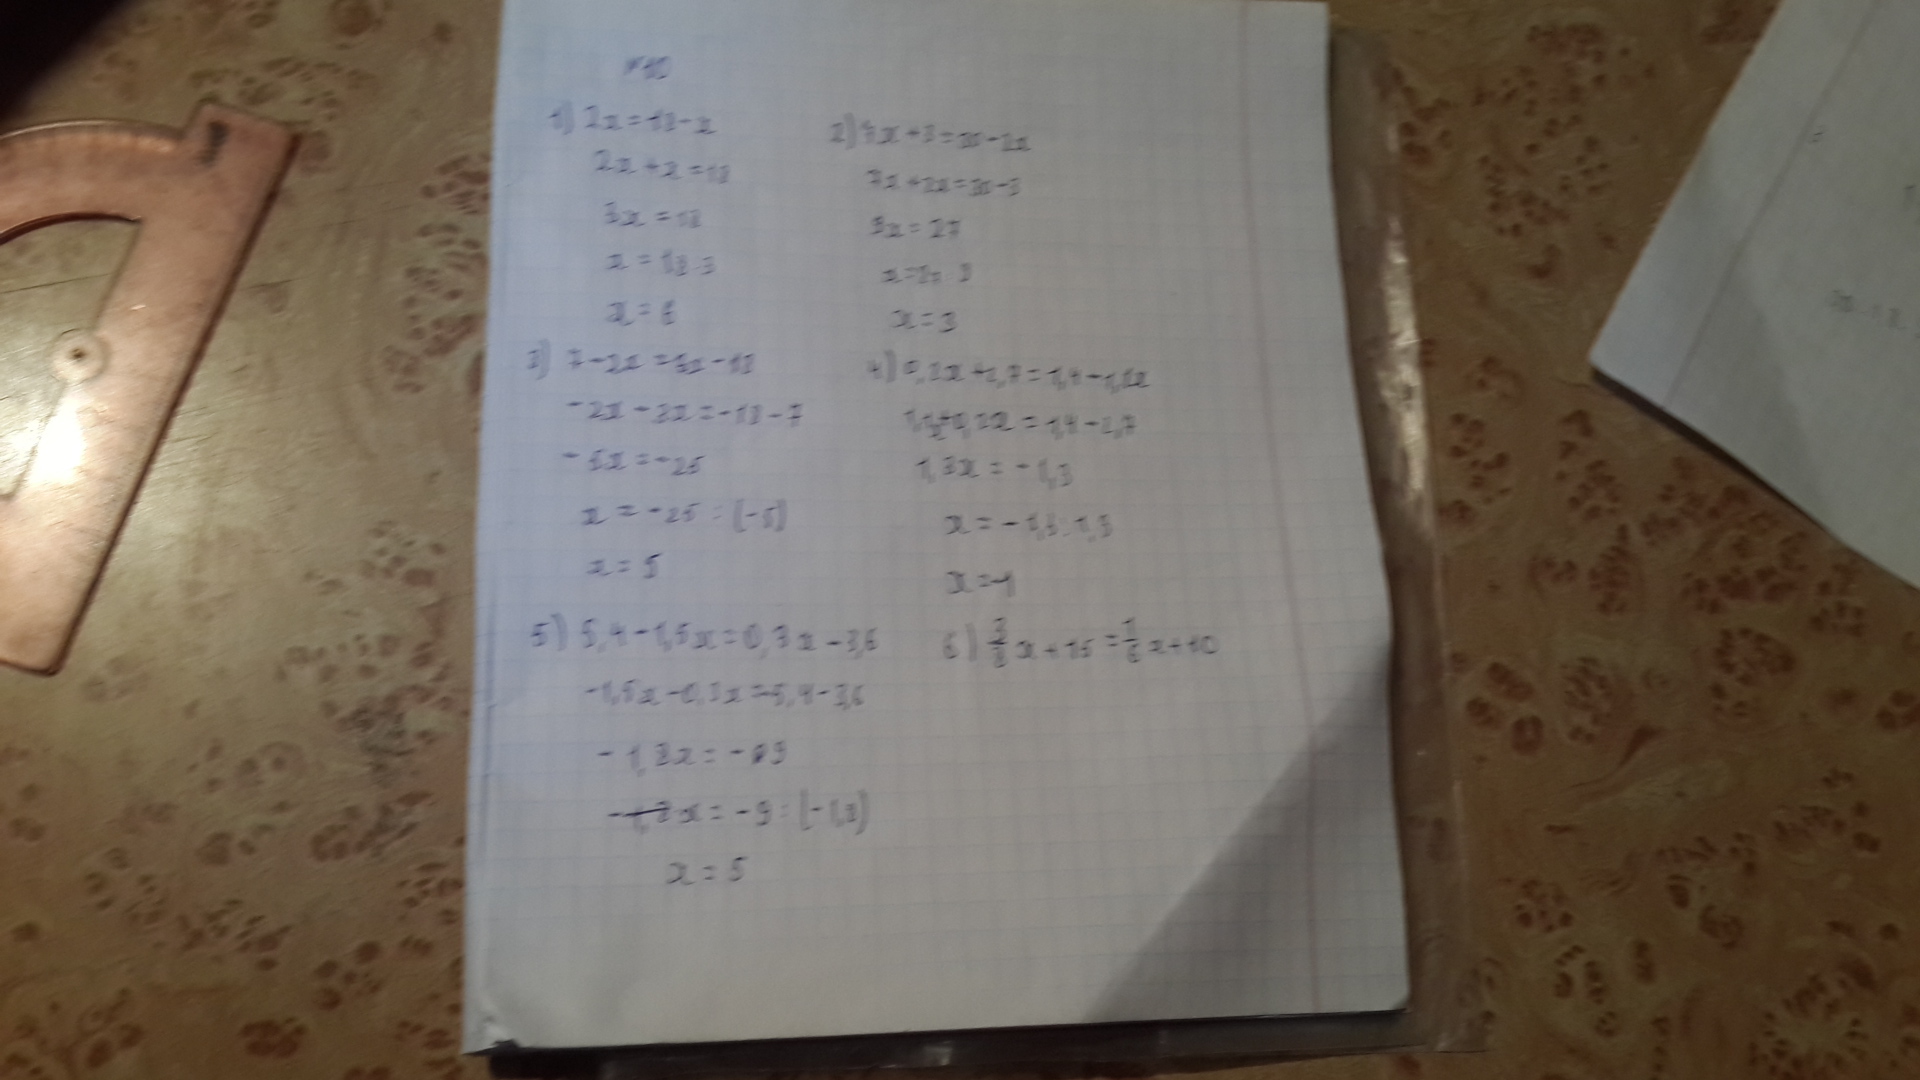 №10
1) 2x=18-x
2x+x=18
3x=18
x=18:3
x=6
2) 7x+3=30-2x
7x+2x=30-3
9x=27
x=27:9
x=3
3) 7-2x=3x-18
-2x-3x=-18-7
-5x=-25
x=-25:(-5)
x=5
4) 0,2x+2,7=1,4-1,1x
1,1x+0,2x=1,4-2,7
1,3x=-1,3
x=-1,3:1,3
x=-1
5) 5,4-1,5x=0,3x-3,6
-1,5x-0,3x=-5,4-3,6
-1,8x=-9
x=-9:(-1,8)
x=5
6) 3/8x+15=1/6x+10